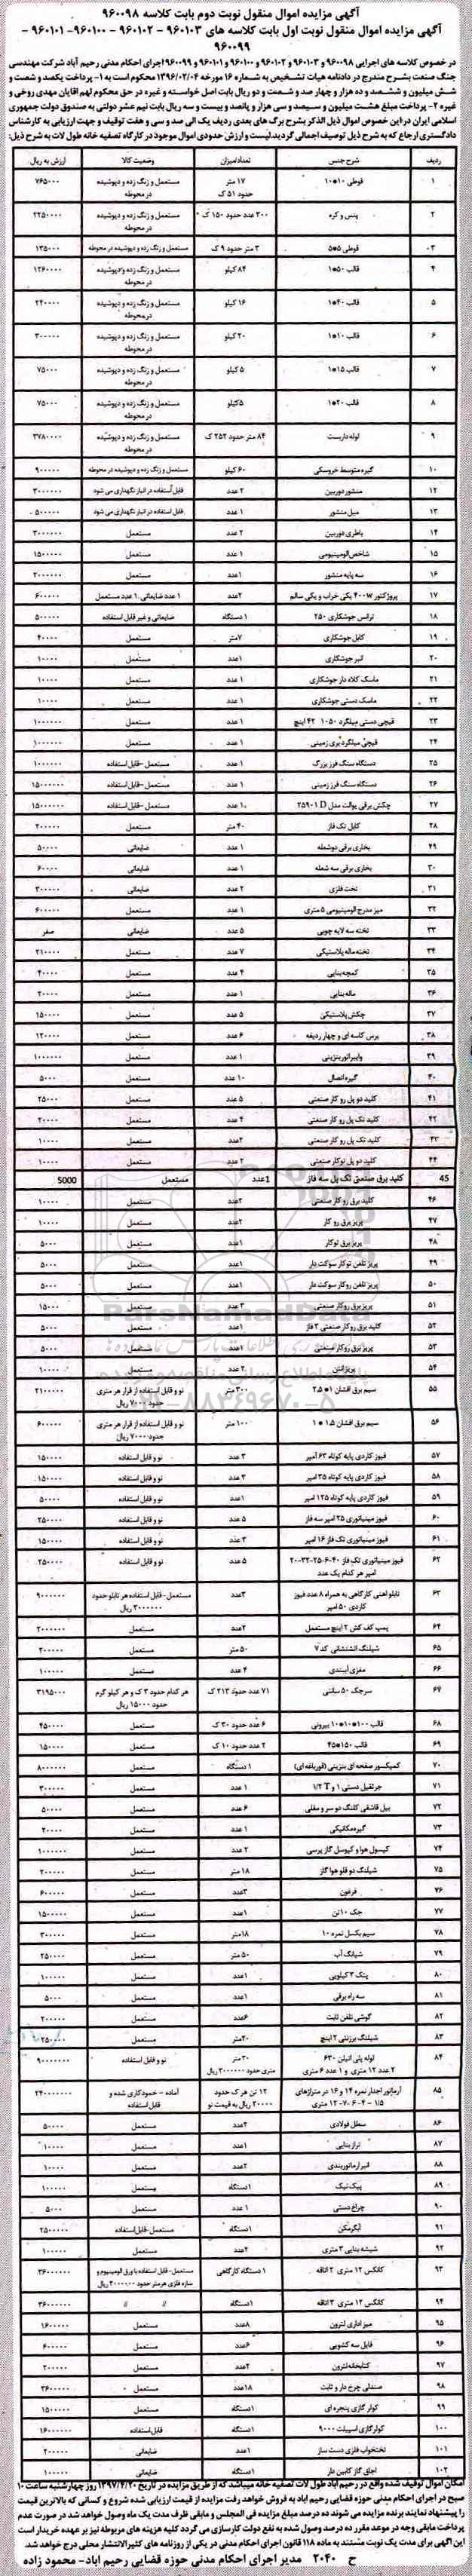 آگهی مزایده اموال منقول نوبت دوم بابت کلاسه ۹۶۰۰۹۸
آگهی مزایده اموال منقول نوبت اول بابت کلاسه های ۹۶۰۱۰۳ - ۹۶۰۱۰۲ - ۹۶۰۱۰۰ - ۹۶۰۱۰۱ -
۹۶۰۰۹۹
در خصوص کلاسه های اجرایی ۹۶۰۰۹۸ و ۹۶۰۱۰۳ و ۹۶۰۱۰۲ و ۹۶۰۱۰۰ و ۹۶۰۱۰۱ و ۹۶۰۰۹۹ اجرای احکام مدنی رحیم آباد شرکت مهندسی
جنگ صنعت بشرح مندرج در دادنامه هیات تشخیص به شماره ۱۶ مورخه ۱۳۹۶/۰۲/۰۴ محکوم است به ۱- پرداخت یکصد و شصت و
شش میلیون و ششصد و ده هزار و چهار صد و شصت و دو ریال بابت اصل خواسته و غیره در حق محکوم لهم اقایان مهدی روخی و
غیره ۲- پرداخت مبلغ هشت میلیون و سیصد و سی هزار و پانصد و بیست و سه ریال بابت نیم عشر دولتی به صندوق دولت جمهوری
اسلامی ایران در این خصوص اموال ذیل الذکر بشرح برگ های بعدی ردیف یک الی صد و سی و هفت توقیف و جهت ارزیابی به کارشناس
دادگستری ارجاع که به شرح ذیل توصیف اجمالی گردید. لیست و ارزش حدودی اموال موجود در کارگاه تصفیه خانه طول لات به شرح ذیل:
ردیف شرح جنس تعداد/میزان وضعیت کالا ارزش به ریال
۱ قوطی ۱۰*۱۰ ۱۷ متر حدود ۵۱ ک مستعمل و زنگ زده و دپوشیده در محوطه ۷۶۵۰۰۰
۲ پنس و گره ۳۰۰ عدد حدود ۱۵۰ ک مستعمل و زنگ زده و دپوشیده در محوطه ۲۲۵۰۰۰۰
۰۳ قوطی ۵*۵ ۳ متر حدود ۹ ک مستعمل و زنگ زده و دپوشیده در محوطه ۱۳۵۰۰۰
۴ قالب ۵۰*۱ ۸۴ کیلو مستعمل و زنگ زده و دپوشیده در محوطه ۱۲۶۰۰۰۰
۵ قالب ۴۰*۱ ۱۶ کیلو مستعمل و زنگ زده و دپوشیده در محوطه ۲۴۰۰۰۰
۶ قالب ۱۰*۱ ۲۰ کیلو مستعمل و زنگ زده و دپوشیده در محوطه ۳۰۰۰۰۰
۷ قالب ۱۵*۱ ۵ کیلو مستعمل و زنگ زده و دپوشیده در محوطه ۷۵۰۰۰
۸ قالب ۲۰*۱ ۵ کیلو مستعمل و زنگ زده و دپوشیده در محوطه ۷۵۰۰۰
۹ لوله داربست ۸۴ متر حدود ۲۵۲ ک مستعمل و زنگ زده و دپوشیده در محوطه ۳۷۸۰۰۰۰
۱۰ گیره متوسط خروسکی ۶۰ کیلو مستعمل و زنگ زده و دپوشیده در محوطه ۹۰۰۰۰۰
۱۲ منشور دوربین ۲ عدد قابل استفاده در انبار نگهداری می شود ۳۰۰۰۰۰۰
۱۳ میل منشور ۱ عدد قابل استفاده در انبار نگهداری می شود ۵۰۰۰۰۰
۱۴ باطری دوربین ۲ عدد مستعمل ۳۰۰۰۰۰۰
۱۵ شاخص الومینیومی ۱ عدد مستعمل ۱۵۰۰۰۰۰
۱۶ سه پایه منشور ۱ عدد مستعمل ۲۰۰۰۰۰۰
۱۷ پروژکتور ۴۰۰w یکی خراب و یکی سالم ۲ عدد ۱ عدد ضایعاتی، ۱ عدد مستعمل ۶۰۰۰۰۰
۱۸ ترانس جوشکاری ۲۵۰ ۱ دستگاه ضایعاتی و غیر قابل استفاده ۵۰۰۰۰۰
۱۹ کابل جوشکاری ۷ متر مستعمل ۴۰۰۰۰
۲۰ انبر جوشکاری ۱ عدد مستعمل ۱۰۰۰۰
۲۱ ماسک کلاه دار جوشکاری ۱ عدد مستعمل ۱۰۰۰۰
۲۲ ماسک دستی جوشکاری ۱ عدد مستعمل ۱۰۰۰۰
۲۳ قیچی دستی میلگرد ۱۰۵۰ ۴۲ اینچ ۱ عدد مستعمل ۱۰۰۰۰۰۰
۲۴ قیچی میلگرد بری زمینی ۱ عدد مستعمل ۱۰۰۰۰۰۰
۲۵ دستگاه سنگ فرز بزرگ ۱ عدد مستعمل -قابل استفاده ۱۰۰۰۰۰۰
۲۶ دستگاه سنگ فرز زمینی ۱ عدد مستعمل -قابل استفاده ۱۵۰۰۰۰۰۰
۲۷ چکش برقی یوالت مدل ۲۵۹۰۱ D ۱ عدد مستعمل -قابل استفاده ۱۵۰۰۰۰۰۰
۲۸ کابل تک فاز ۴۰ متر مستعمل ۲۰۰۰۰۰
۲۹ بخاری برقی دوشعله ۱ عدد ضایعاتی ۵۰۰۰۰
۳۰ بخاری برقی سه شعله ۱ عدد ضایعاتی ۶۰۰۰۰
۳۱ تخت فلزی ۲ عدد ضایعاتی ۳۰۰۰۰۰
۳۲ میز مدرج الومینیومی ۵ متری ۱ عدد مستعمل ۶۰۰۰۰۰
۳۳ تخته سه لایه چوبی ۵ عدد ضایعاتی صفر
۳۴ تخته ماله پلاستیکی ۷ عدد مستعمل ۲۱۰۰۰۰
۳۵ کمچه بنایی ۴ عدد مستعمل ۴۰۰۰۰
۳۶ ماله بنایی ۱ عدد مستعمل ۲۰۰۰۰
۳۷ چکش پلاستیکی ۵ عدد مستعمل ۱۵۰۰۰۰
۳۸ برس کاسه ای و چهار ردیفه ۶ عدد مستعمل ۱۲۰۰۰۰
۳۹ وایبراتور بنزینی ۱ عدد مستعمل ۱۰۰۰۰۰۰
۴۰ گیره اتصال ۱۰ عدد مستعمل ۵۰۰۰
۴۱ کلید دو پل رو کار صنعتی ۵ عدد مستعمل ۲۵۰۰۰
۴۲ کلید تک پل رو کار صنعتی ۴ عدد مستعمل ۲۰۰۰۰
۴۳ کلید تک پل رو کار صنعتی ۲ عدد مستعمل ۱۰۰۰۰
۴۴ کلید دو پل توکار صنعتی ۲ عدد مستعمل ۱۰۰۰۰
45 کلید برق صنعتی تک پل سه فاز 1عدد مستعمل 5000
۴۶ کلید برق رو کار صنعتی ۲عدد مستعمل ۱۰۰۰۰
۴۷ پریز برق رو کار ۲عدد مستعمل ۱۰۰۰۰
۴۸ پریز برق توکار ۱عدد مستعمل ۵۰۰۰
۴۹ پریز تلفن توکار سوکت دار ۱عدد مستعمل ۵۰۰۰
۵۰ پریز تلفن روکار سوکت دار ۱عدد مستعمل ۵۰۰۰
۵۱ پریز برق روکار صنعتی ۳ عدد مستعمل ۱۵۰۰۰
۵۲ کلید برق روکار صنعتی ۳ فاز ۱عدد مستعمل ۵۰۰۰
۵۳ پریز برق روکار صنعتی ۱عدد مستعمل ۵۰۰۰
۵۴ پریز آنتن ۲ عدد مستعمل ۱۰۰۰۰
۵۵ سیم برق افشان ۱*۲.۵ ۳۰۰ متر نو و قابل استفاده از قرار هر متری حدود ۷۰۰۰ ریال ۲۱۰۰۰۰۰
۵۶ سیم برق افشان ۱.۵*۱ ۱۰۰ متر نو و قابل استفاده از قرار هر متری حدود ۷۰۰۰ ریال ۶۰۰۰۰۰
۵۷ فیوز کاردی پایه کوتاه ۶۳ آمپر ۳ عدد نو و قابل استفاده ۱۵۰۰۰۰
۵۸ فیوز کاردی پایه کوتاه ۳۵ آمپر ۳ عدد نو و قابل استفاده ۱۵۰۰۰۰
۵۹ فیوز کاردی پایه کوتاه ۱۲۵ آمپر ۱عدد نو و قابل استفاده ۵۰۰۰۰
۶۰ فیوز مینیاتوری ۲۵ آمپر سه فاز ۵ عدد نو و قابل استفاده ۲۵۰۰۰۰
۶۱ فیوز مینیاتوری تک فاز ۱۶ آمپر ۳ عدد نو و قابل استفاده ۱۵۰۰۰۰
۶۲ فیوز مینیاتوری تک فاز ۴۰-۶-۲۵-۳۲-۲۰ آمپر هر کدام یک عدد ۵ عدد نو و قابل استفاده ۲۵۰۰۰۰
۶۳ تابلو اهنی کارگاهی به همراه ۸ عدد فیوز کاردی ۵۰ آمپر ۳عدد مستعمل- قابل استفاده هر تابلو حدود ۳۰۰۰۰۰۰ ریال ۹۰۰۰۰۰۰
۶۴ پمپ کف کش ۲ اینچ مستعمل ۲عدد مستعمل ۲۰۰۰۰۰۰
۶۵ شیلنگ آتشنشانی کد ۷ ۵۰ متر مستعمل ۲۰۰۰۰۰
۶۶ مغزی آببندی ۴ عدد مستعمل ۱۰۰۰۰۰
۶۷ سرجک ۵۰ سانتی ۷۱ عدد حدود ۲۱۳ ک هر کدام حدود ۳ ک و هر کیلو گرم حدود ۱۵۰۰۰ ریال ۳۱۹۵۰۰۰
۶۸ قالب ۱۰۰*۱۰*۱۰ بیرونی ۶ عدد حدود ۳۰ ک مستعمل ۴۵۰۰۰۰
۶۹ قالب ۱۵۰*۴۵ ۲ عدد حدود ۱۰ ک مستعمل ۱۵۰۰۰۰
۷۰ کمپکسور صفحه ای بنزینی (قورباغه ای) ۱ دستگاه مستعمل ۸۰۰۰۰۰۰
۷۱ جرثقیل دستی ۱ و ۱/۲ T ۱ عدد مستعمل ۳۰۰۰۰۰۰
۷۲ بیل قاشقی کلنگ دو سر و مقنی ۶ عدد مستعمل ۵۰۰۰۰
۷۳ گیره مکانیکی ۱ عدد مستعمل ۲۰۰۰۰
۷۴ کپسول هوا و کپسول گاز پرسی ۲ عدد مستعمل ۱۰۰۰۰۰۰
۷۵ شیلنگ دو قلو هوا گاز ۱۸ متر مستعمل ۲۰۰۰۰۰
۷۶ فرغون ۳عدد مستعمل ۶۰۰۰۰۰
۷۷ جک ۱۰تن ۱عدد مستعمل ۱۵۰۰۰۰۰
۷۸ سیم بکسل نمره ۱۰ ۱۸متر مستعمل ۳۰۰۰۰۰
۷۹ شیلنگ آب ۵۰ متر مستعمل ۲۵۰۰۰۰
۸۰ پتک ۳ کیلویی ۱عدد مستعمل ۱۰۰۰۰۰
۸۱ سه راه برقی ۱عدد مستعمل ۵۰۰۰
۸۲ گوشی تلفن ثابت ۶عدد مستعمل ۲۰۰۰۰۰
۸۳ شیلنگ برزنتی ۲ اینچ ۲۰متر مستعمل ۲۵۰۰۰۰
۸۴ لوله پلی اتیلن ۶۳۰ ۲ عدد ۱۲ متری و ۱ عدد ۶ متری ۳۰متر متری حدود ۳۰۰۰۰۰۰ ریال نو و قابل استفاده ۹۰۰۰۰۰۰۰
۸۵ آرماتور آجدار نمره ۱۴ و ۱۶ در متراژهای ۱/۵ -۴-۶ -۷-۱۲ متری ۱۲ تن هر ک حدود ۲۰۰۰۰ ریال به قیمت نو آماده - خمودکاری شده و قابل استفاده ۲۴۰۰۰۰۰۰۰
۸۶ سطل فولادی ۲عدد مستعمل ۵۰۰۰۰
۸۷ تراز بنایی ۱عدد مستعمل ۱۰۰۰۰
۸۸ انبر آرماتوربندی ۲عدد مستعمل ۱۰۰۰۰
۸۹ پیک نیک ۱دستگاه مستعمل ۱۰۰۰۰۰
۹۰ چراغ دستی ۱ عدد مستعمل ۵۰۰۰
۹۱ آبگرمکن ۱دستگاه مستعمل -قابل استفاده ۲۵۰۰۰۰۰
۹۲ شیشه بنایی ۳ متری ۲عدد مستعمل ۱۰۰۰۰۰
۹۳ کانکس ۱۲ متری ۲ اتاقه ۱ دستگاه کارگاهی مستعمل- قابل استفاده با ورق الومینیوم و سازه فلزی هر متر حدود ۳۰۰۰۰۰۰ ریال ۳۶۰۰۰۰۰۰
۹۴ کانکس ۱۲ متری ۳ اتاقه ۱دستگاه // // ۳۶۰۰۰۰۰۰
۹۵ میز اداری لترون ۸عدد مستعمل ۱۶۰۰۰۰۰
۹۶ فایل سه کشویی ۶عدد مستعمل ۶۰۰۰۰۰
۹۷ کتابخانه لترون ۲عدد مستعمل ۲۰۰۰۰۰
۹۸ صندلی چرخ دار و ثابت ۱۸عدد مستعمل ۳۶۰۰۰۰۰
۹۹ کولر گازی پنجره ای ۱دستگاه مستعمل ۱۵۰۰۰۰۰
۱۰۰ کولر گازی اسپیلت ۹۰۰۰ ۱دستگاه قابل استفاده ۱۶۰۰۰۰۰۰
۱۰۱ تختخواب فلزی دست ساز ۱عدد ضایعاتی ۲۰۰۰۰۰
۱۰۲ اجاق گاز کابین دار ۱دستگاه ضایعاتی ۱۰۰۰۰۰
امکان اموال توقیف شده واقع در رحیم آباد طول لات تصفیه خانه میباشد که از طریق مزایده در تاریخ ۱۳۹۷/۴/۲۰ روز چهارشنبه ساعت ۱۰
صبح در اجرای احکام مدنی حوزه قضایی رحیم آباد به فروش خواهد رفت مزایده از قیمت ارزیابی شده شروع و کسانی که بالاترین قیمت
را پیشنهاد نمایند برنده مزایده می شوند ده درصد مبلغ مزایده فی المجلس و مابقی ظرف مدت یک ماه وصول خواهد شد در صورت عدم
پرداخت مابقی وجه در موعد مقرر ده درصد وصول شده به نفع دولت کارسازی می گردد کلیه هزینه های مربوطه نیز بر عهده خریدار است
این آگهی برای مدت یک نوبت مستند به ماده ۱۱۸ قانون اجرای احکام مدنی در یکی از روزنامه های کثیرالانتشار محلی درج خواهد شد.
ح ۲۰۴۰ مدیر اجرای احکام مدنی حوزه قضایی رحیم آباد- محمود زاده
ParsNamadData
۰۲۱-۸۸۳۴۹۶۷۰-۵